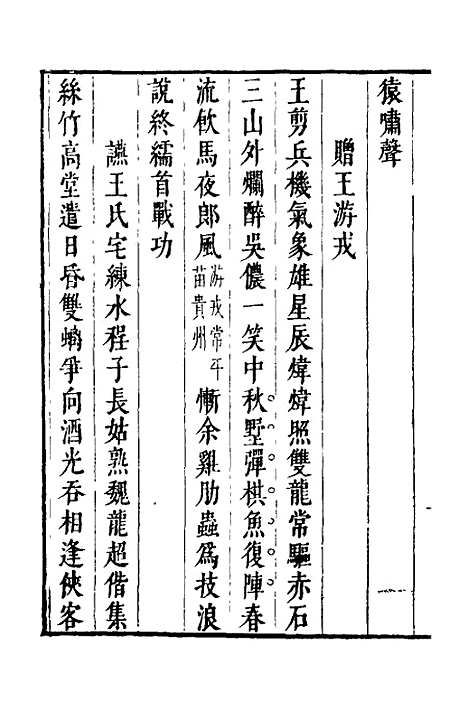 猿嘯聲
贈王游戎
王剪兵機氣象雄星辰煒煒照雙龍常驅赤石
三山外爛醉吳儂一笑中秋墅彈棋魚復陣春
流飲馬夜郎風游戎常平苗貴州慚余雞肋蟲爲技浪
說終繻首戰功
讌王氏宅練水程子長姑熟魏龍超偕集
絲竹高堂遣日昏雙螭爭向酒光吞相逢俠客